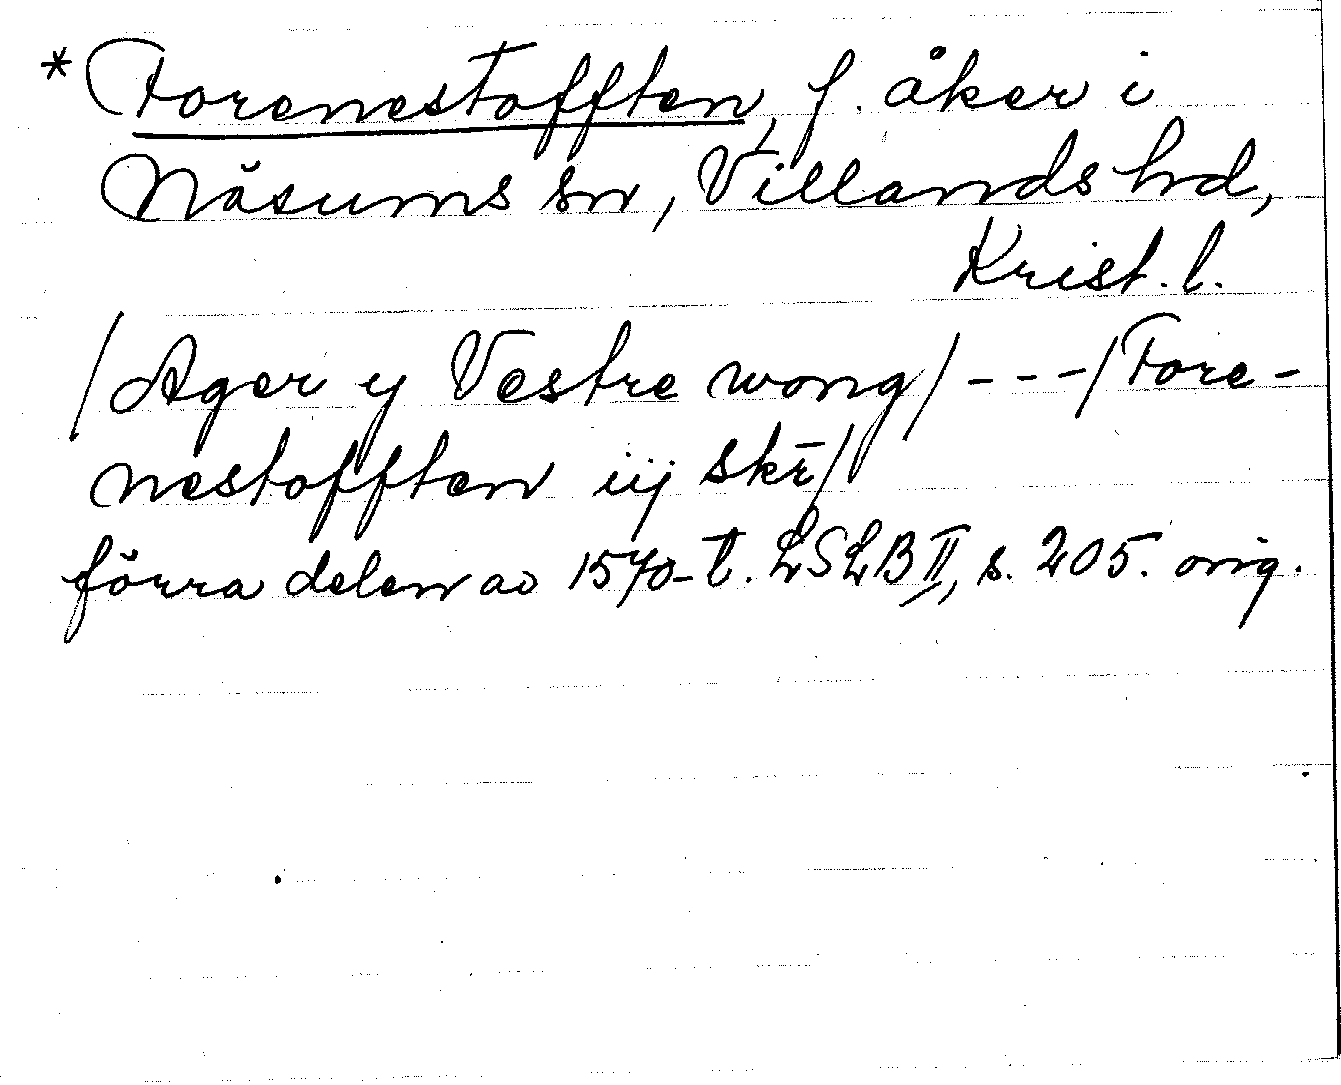 * Forenestofften, f. åker i
Näsums sn, Villands hd,
Krist. l.
/Ager y Vestre wong/ - - - /Fore-
nestofften iij skr̄/
förra delen av 1570-t. LSLB II, s. 205. orig.